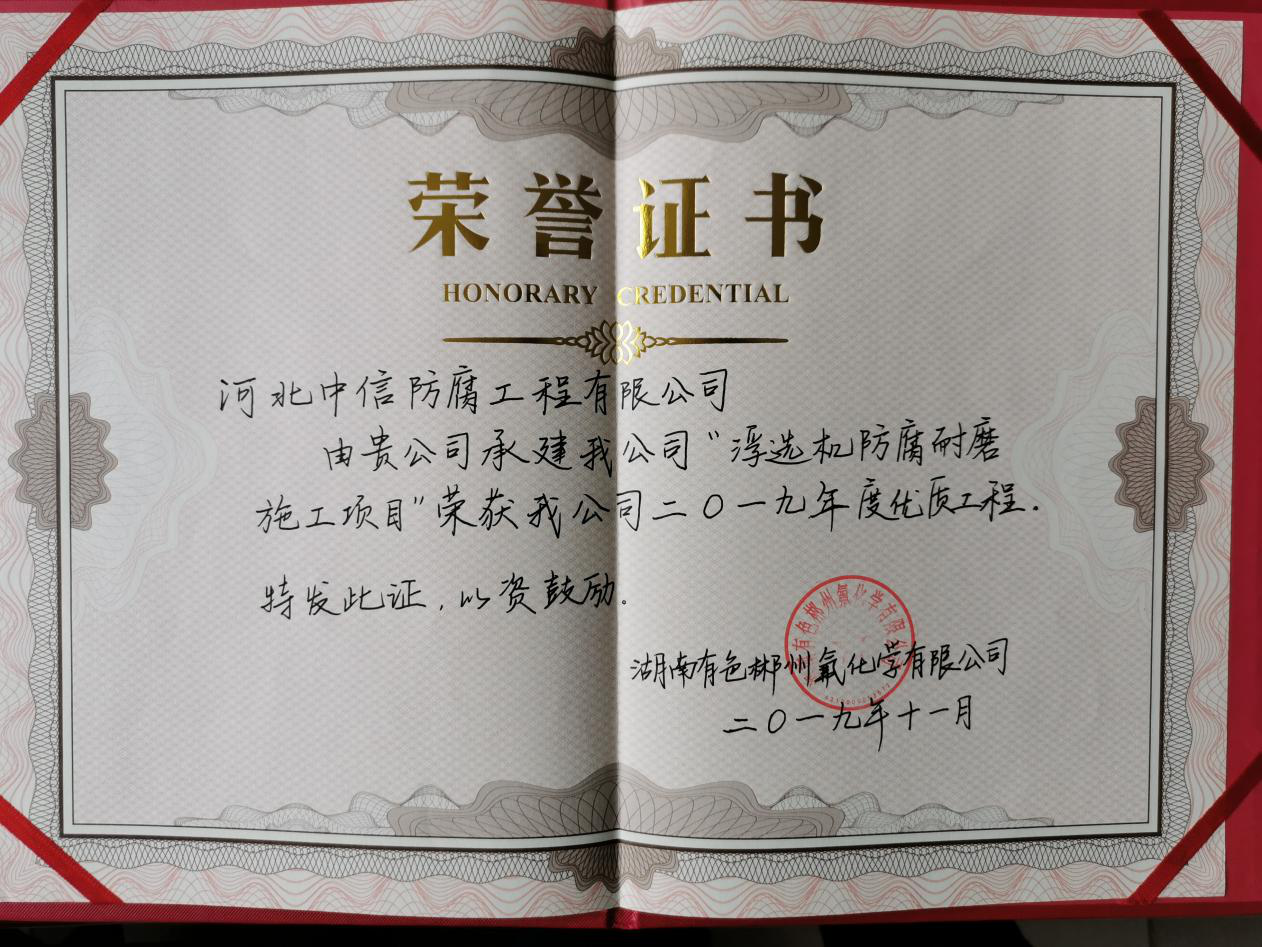 荣誉证书
HONORARY CREDENTIAL
河北中信防腐工程有限公司
由贵公司承建我公司"浮选机防腐耐磨
施工项目"荣获我公司二〇一九年度优质工程.
特发此证,以资鼓励.
有色郴州氟化学有限公
湖南有色郴州氟化学有限公司
二〇一九年十一月